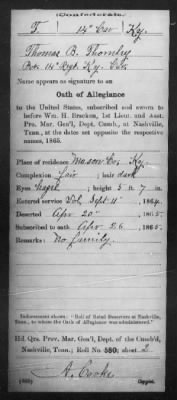 (Confederate.)
T. 14" Cav Ky.
Thomas B. Thornley
Pvt. 14" Regt. Ky. Cav.
Name appears as signature to an
Oath of Allegiance
to the United States, subscribed and sworn to
before Wm. H. Bracken, 1st Lieut. and Asst.
Pro. Mar. Gen'l, Dept. Cumb., at Nashville,
Tenn., at the dates set opposite the respective
names, 1865.
Place of residence Mason Co. Ky.
Complexion fair ; hair dark
Eyes hazel ; height 5 ft 7 in.
Entered service Vol. Sept. 11" , 1864.
Deserted Apr 20" , 1865.
Subscribed to oath Apr 26 , 1865.
Remarks: No family.
Indorsement shows: "Roll of Rebel Deserters at Nashville,
Tenn., to whom the Oath of Allegiance was administered."
Hd. Qrs. Prov. Mar. Gen'l, Dept. of the Cumb'd,
Nashville, Tenn.; Roll No. 580; sheet 2
A. Cooke
Copyist.